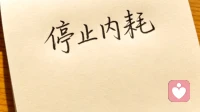 停止内耗